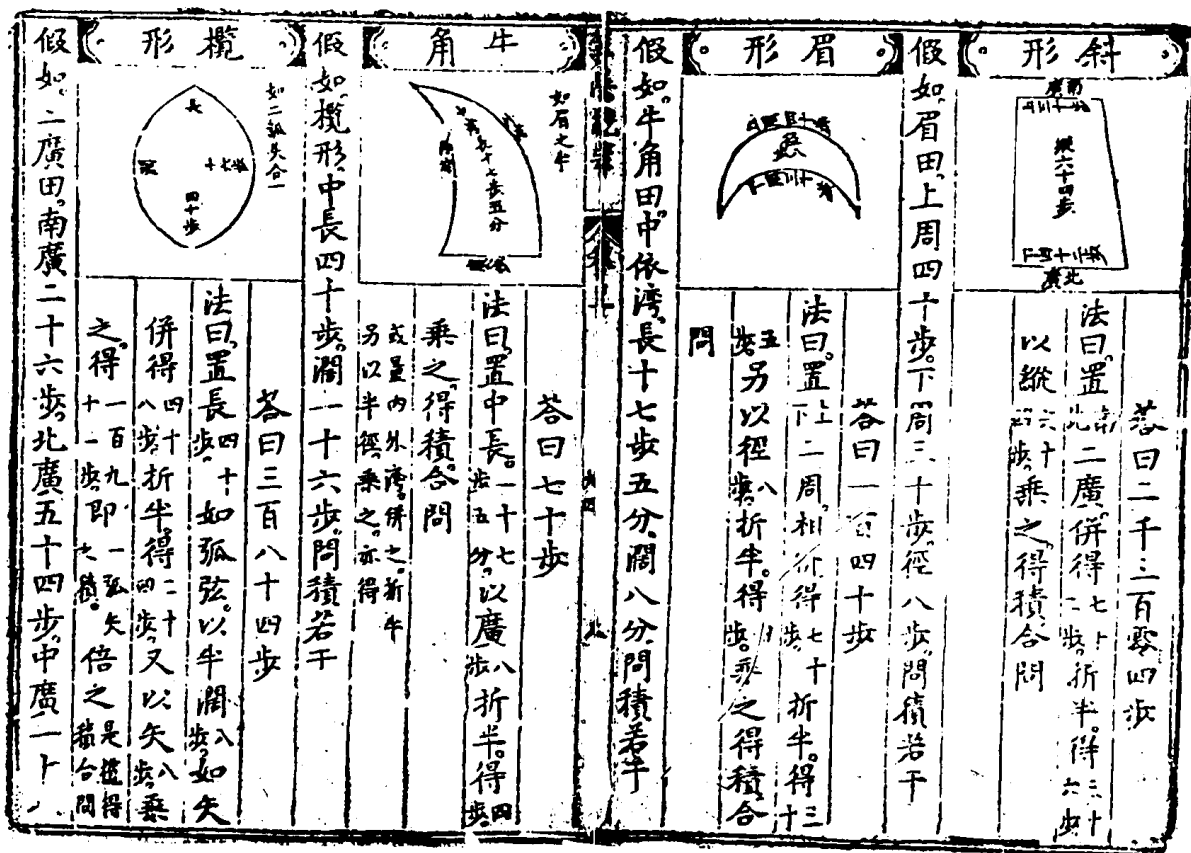 斜形
南廣
縱六十四步
北廣
答曰二千三百零四步
法曰置南北二廣併得七十二步折半得三十六步
以縱六十四步乘之得積合問
假如眉田上周四十步下周三十步徑八步問積若干
眉形
答曰一百四十步
法曰置上下二周相併得七十步折半得三十
五步另以徑八步折半得四步乘之得積合
問
假如牛角田中依湾長十七步五分闊八分問積若干
牛角
如右之半
中長十七步五分
答曰七十步
法曰置中長一十七步五分以廣八步折半得四步
乘之得積合問
或量內外湾併之折半
另以半徑乘之亦得
假如欖形中長四十步濶一十六步問積若干
欖形
如二弧矢合一
長
四十步
答曰三百八十四步
法曰置長四十步如弧弦以半濶八步如矢
併得四十八步折半得二十四步又以矢八步乘
之得一百九十一步即一弧矢之積倍之是欖得積合問
假如二廣田南廣二十六步北廣五十四步中廣一十八